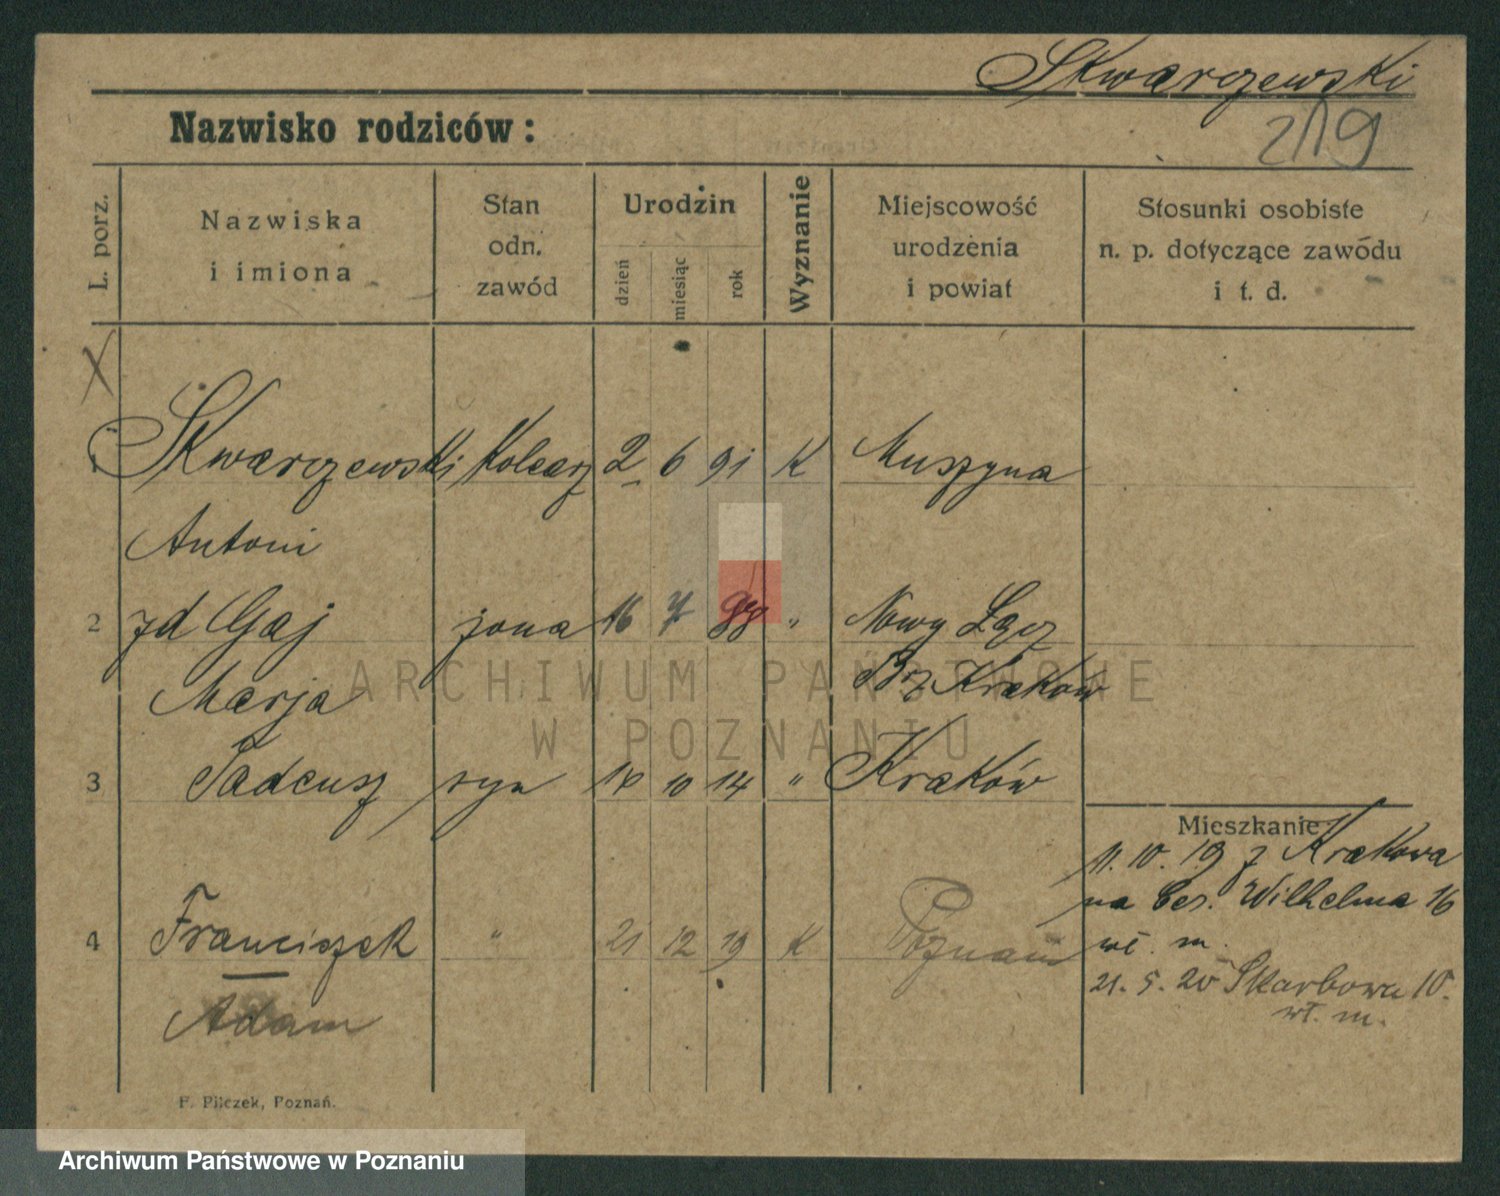 Skwarczewski
Nazwisko rodziców:
219
L. porz.
Nazwiska
i imiona
Stan
odn.
zawód
Urodzin
dzień
miesiąc
rok
Wyznanie
Miejscowość
urodzenia
i powiat
Stosunki osobiste
n. p. dotyczące zawódu
i t. d.
X
1 Skwarczewski Kolearz 2 6 91 K Muszyna
Antoni
2 zd Gaj żona 16 7 " Nowy Łącz
Marja Brz Kraków
3 Tadeusz syn 10 14 " Kraków
Mieszkanie
11. 10. 19 z Krakowa
na Ces. Wilhelma 16
4 Franciszek " 21 12 19 K Poznań wł. m.
21. 5. 20 Skarbowa 10.
Adam wł. m.
F. Pilczek, Poznań.
ARCHIWUM PAŃSTWOWE
W POZNANIU
Archiwum Państwowe w Poznaniu